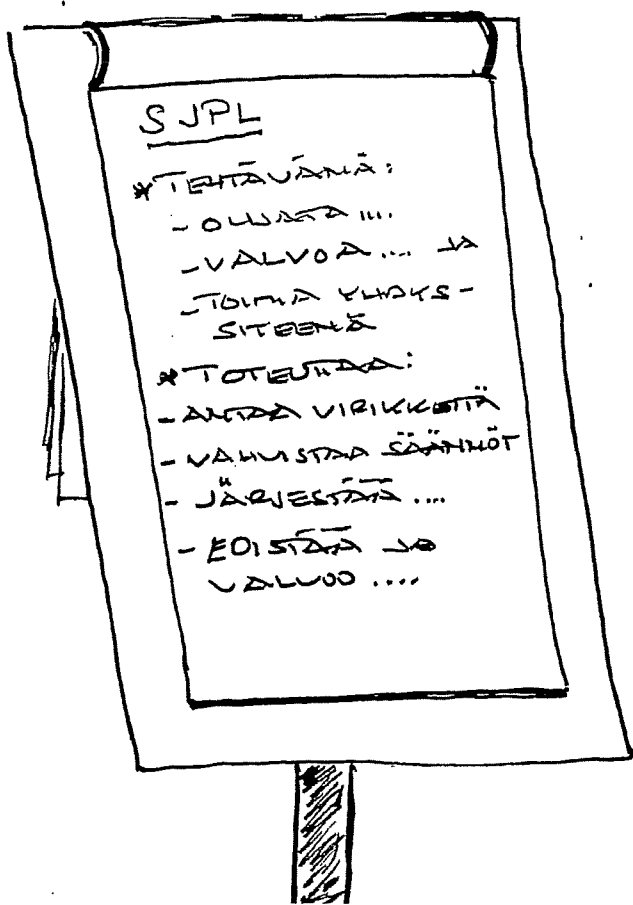 SJPL
* TEHTÄVÄNÄ:
- OHJATA ...
- VALVOA ... JA
- TOIMIA YHDYS-
SITEENÄ
* TOTEUTTAA:
- ANTAA VIRIKKEITÄ
- VAHVISTAA SÄÄNNÖT
- JÄRJESTÄÄ ....
- EDISTÄÄ JA
VALVOO ....